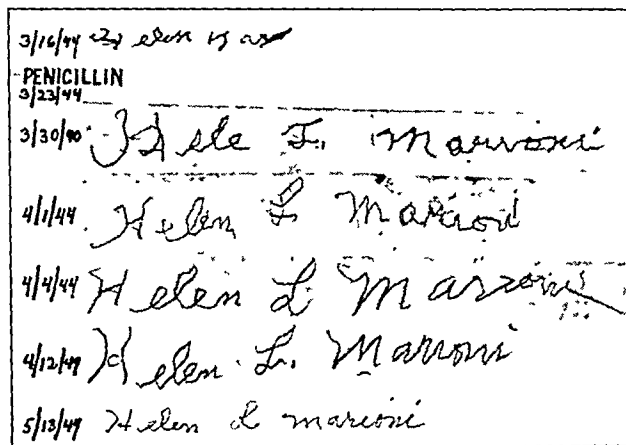 3/16/44 Helen
PENICILLIN
3/23/44
3/30/40 Hele L. Marvoni
4/1/44 Helen L Marioni
4/4/44 Helen L Marzoni
4/12/44 Helen L. Marroni
5/13/49 Helen L marioni